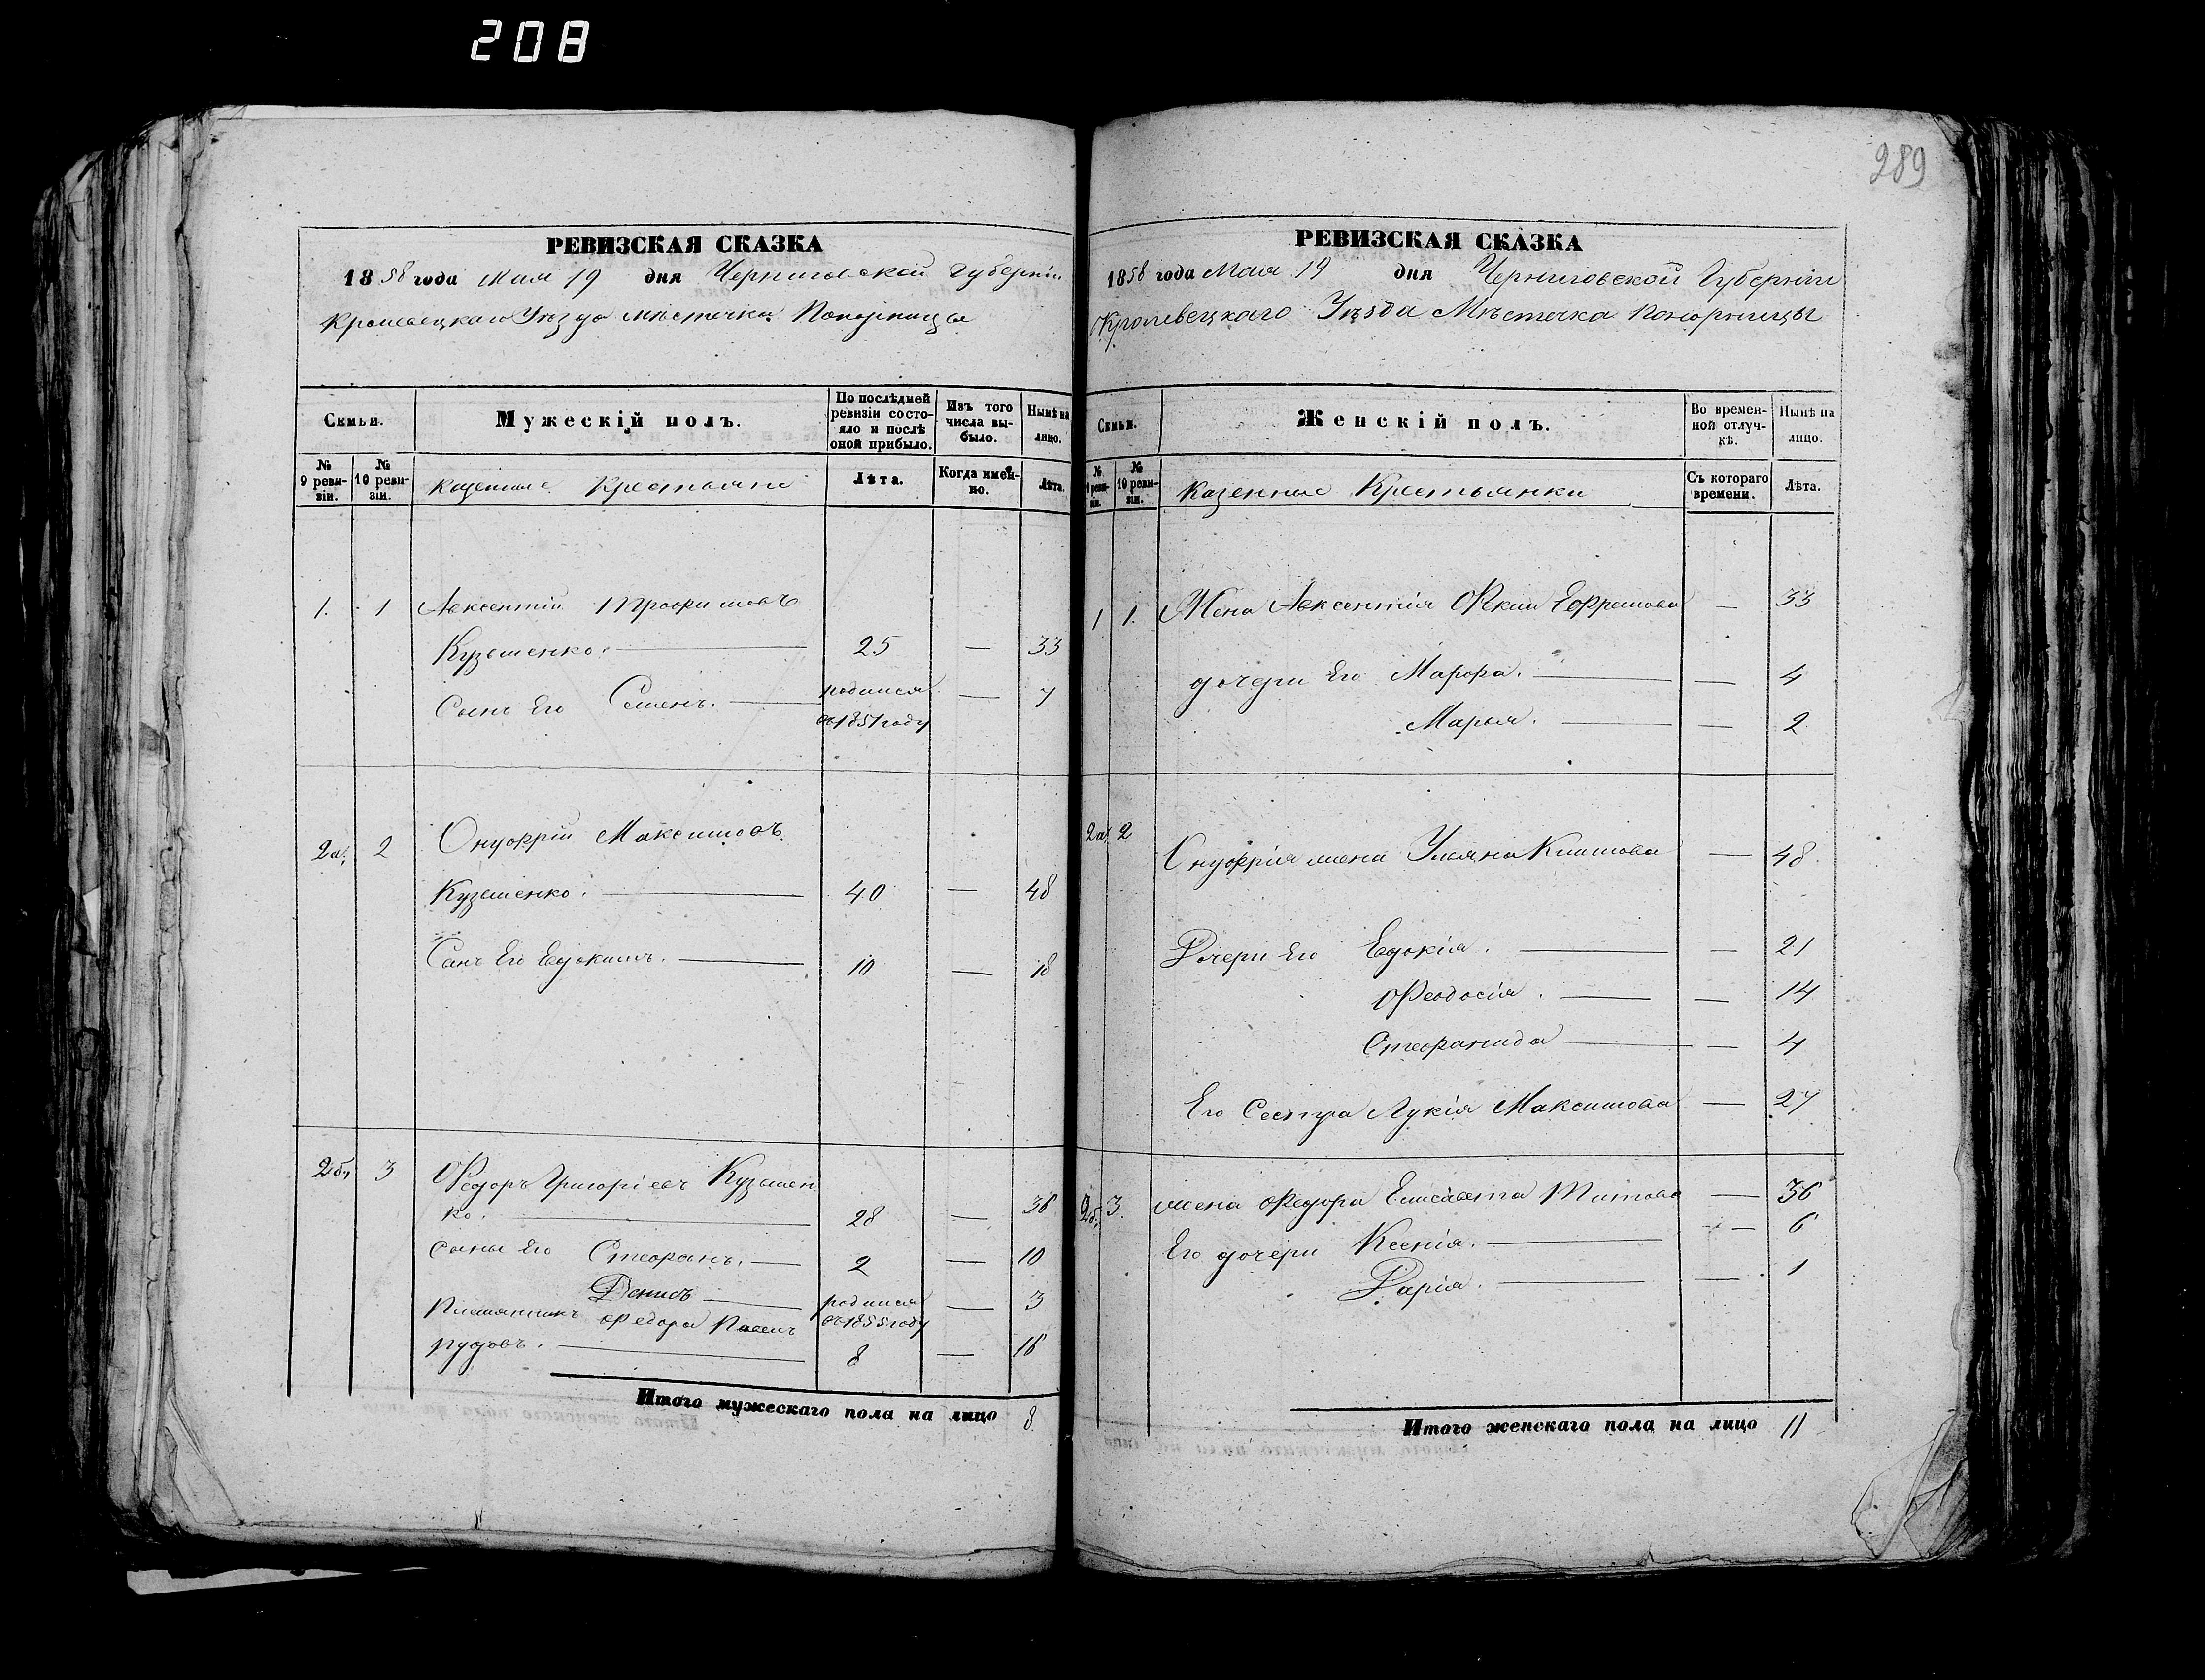 208
289
РЕВИЗСКАЯ СКАЗКА
1858 года Мая 19 дня Черниговской Губерніи
Кролевецкаго Уѣзда мѣстечка Понорницы
Семьи.
Мужескій полъ.
По послѣдней ревизіи состояло и послѣ оной прибыло.
Изъ того числа выбыло.
Нынѣ на лицо.
№ 9 ревизіи.
№ 10 ревизіи.
Казенные Крестьяне
Лѣта.
Когда именно.
Лѣта.
1. 1 Авксентій Трофимовъ
Кузьменко. 25 — 33
Сынъ Его Семенъ. родился — 7
въ 1851 году
2а, 2 Онуфрій Максимовъ
Кузьменко. 40 — 48
Сынъ Его Евдокимъ. 10 — 18
2б, 3 Федоръ Григоріевъ Кузьмен
ко. 28 — 36
Сыны Его Стефанъ. 2 — 10
Денисъ родился — 3
въ 1855 году
Племянникъ Федора Павелъ
8 — 16
Итого мужескаго пола на лицо 8
РЕВИЗСКАЯ СКАЗКА
1858 года Мая 19 дня Черниговской Губерніи
Кролевецкаго Уѣзда Мѣстечка Понорницы
Семьи.
Женскій полъ.
Во временной отлучкѣ.
Нынѣ на лицо.
№ 9 ревизіи.
№ 10 ревизіи.
Казенные Крестьянки
Съ котораго времени.
Лѣта.
1 1. Жена Авксентія Ефремова — 33
дочери Его Марфа. — 4
Марья. — 2
2а, 2 Онуфрія жена Ульяна Климова — 48
Дочери Его Евдокія. — 21
Феодосія. — 14
Стефанида — 4
Его Сестра Лукія Максимова — 27
2б, 3. жена Федора Елисавета Титова — 36
Его дочери Ксенія. — 6
Дарія. — 1
Итого женскаго пола на лицо 11